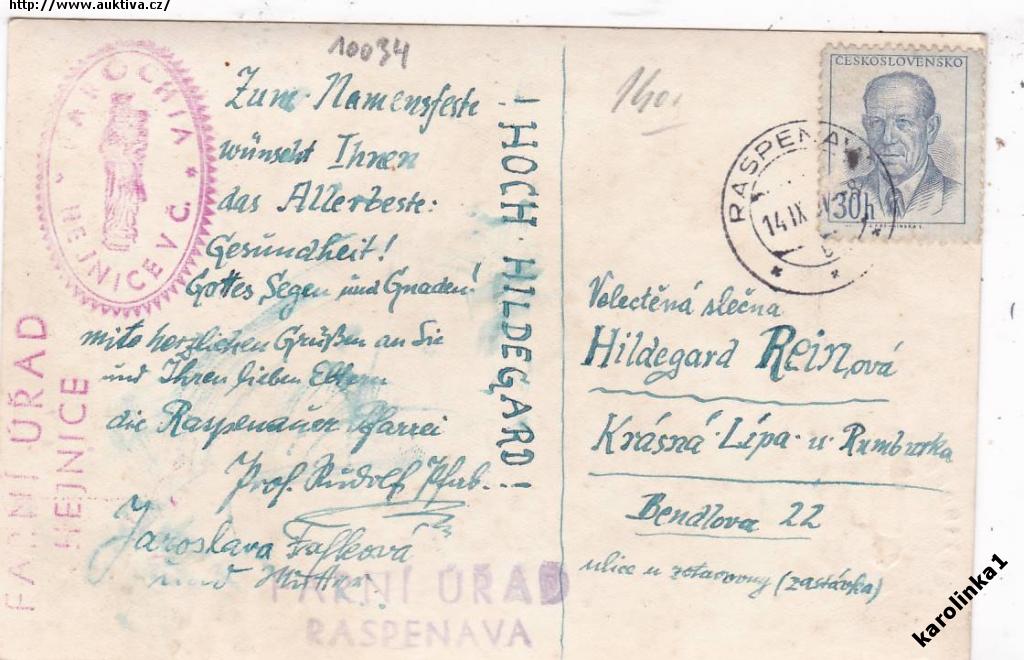 http://www.auktiva.cz/
10034
PAROCHIA * HEJNICE V Č. *
Zum Namensfeste
wünscht Ihnen
das Allerbeste:
Gesundheit!
Gottes Segen und Gnaden!
mit herzlichen Grüßen an Sie
und Ihren lieben Eltern
die Raspenauer Pfarrei
Prof. Rudolf Pfab.
Jaroslava
und Mutter.
! HOCH HILDEGARD !
FARNÍ ÚŘAD
HEJNICE
FARNÍ ÚŘAD
RASPENAVA
ČESKOSLOVENSKO
30h
RASPENAVA
14 IX
Velectěná slečna
Hildegard Reinová
Krásná Lípa u Rumburka
Bendlova 22
ulice u (zastávka)
karolinka1